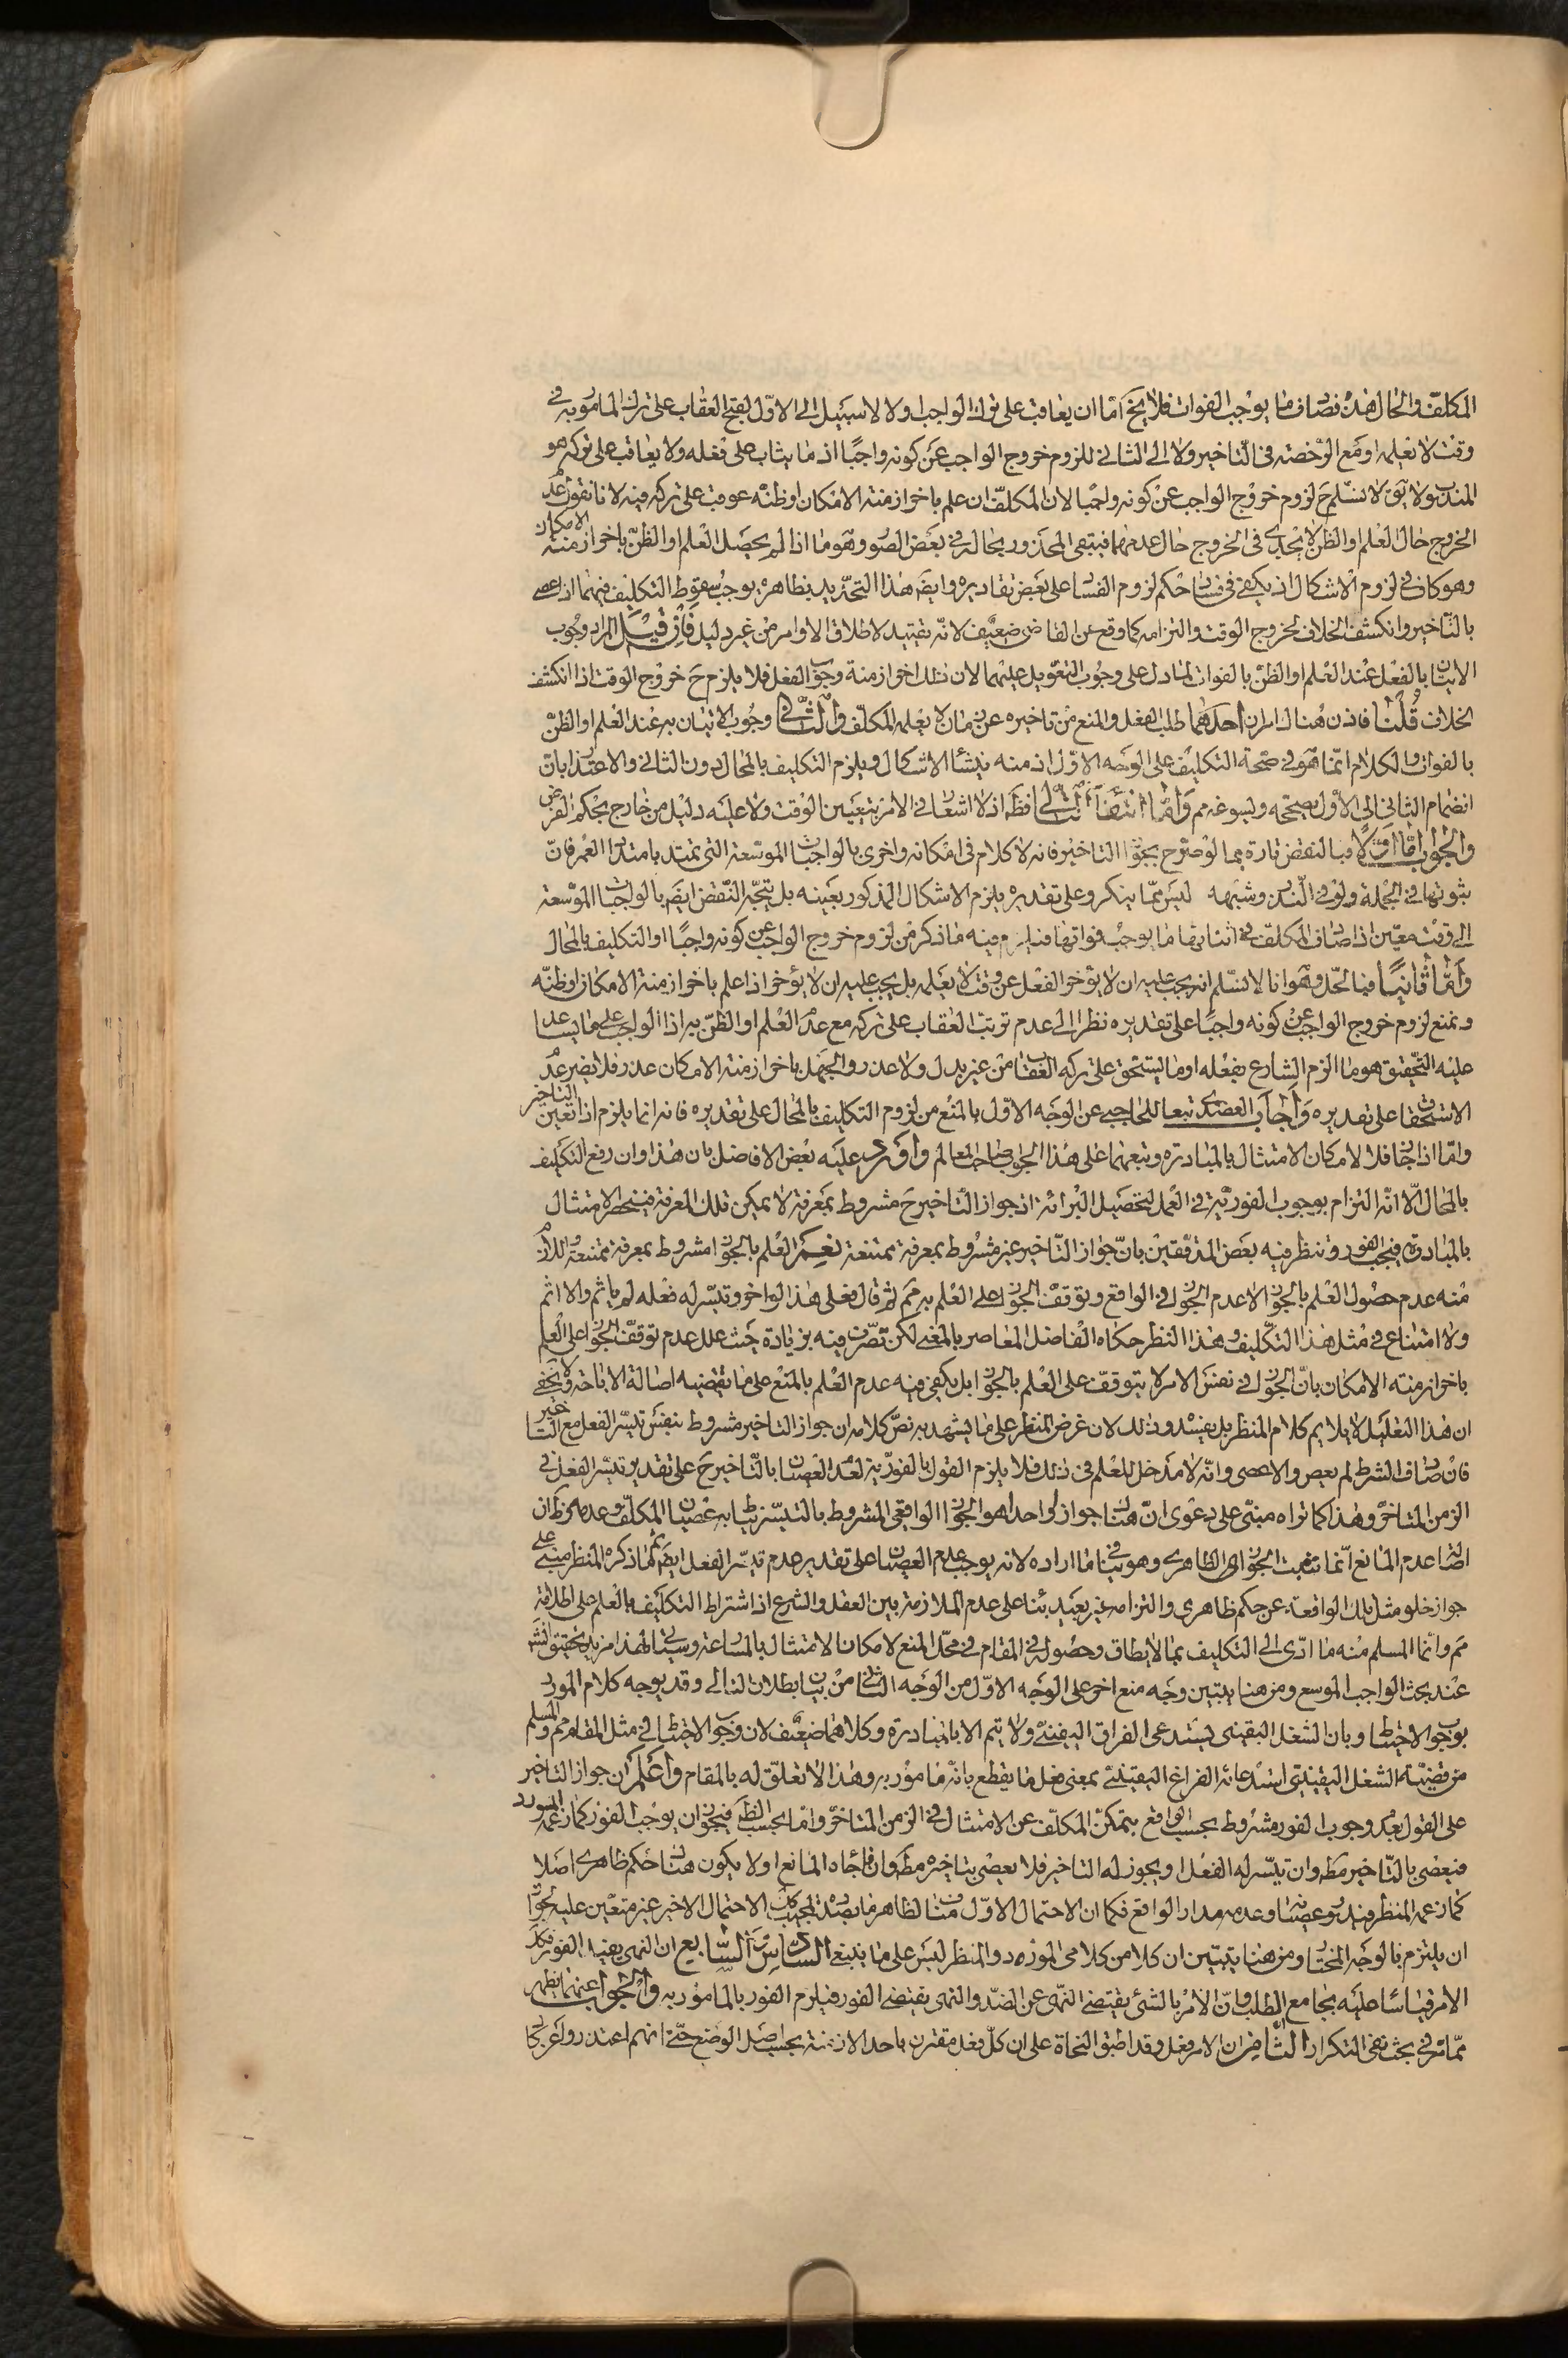 المكلف والحال هذه فصادف ما يوجب الفوات فلا يخ امّا ان يعاقب على ترك الواجب او لا لا سبيل الى الاوّل لقبح العقاب على ترك المامور به في
وقت لا يعلمه او مع الرّخصة في التاخير ولا الى الثاني للزوم خروج الواجب عن كونه واجبًا اذ ما يثاب على فعله ولا يعاقب على تركه هو
المندوب ولا يق لا نسلّم ح لزوم خروج الواجب عن كونه واجبا لان المكلّف ان علم باخر ازمنة الامكان او ظنّه عوقب على تركه فيه لانا نقول عدم
الخروج حال العلم او الظن لا يجدى في الخروج حال عدمهما فيبقى المحذور بحاله في بعض الصور وهو ما اذا لم يحصل العلم او الظنّ باخر ازمنة الامكان
وهو كاف في لزوم الاشكال اذ يكفى في فساد حكم لزوم الفساد على بعض تقاديره وايضَ هذا التحديد بظاهره يوجب سقوط التكليف فيهما اذا عصى
بالتّاخير وانكشف الخلاف لخروج الوقت والتزامه كما وقع عن القاضى ضعيف لانّه تقييد لاطلاق الاوامر من غير دليل فان قيل المراد وجوب
الاتيان بالفعل عند العلم او الظنّ بالفوات لما دل على وجوب التعويل عليهما لان ذلك اخر ازمنة وجوب الفعل فلا يلزم ح خروج الوقت اذا انكشف
الخلاف قلنا فاذن هناك امران احدهما طلب الفعل والمنع من تاخيره عن زمان لا يعلمه المكلّف والثّانى وجوب الاتيان به عند العلم او الظنّ
بالفوات والكلام انّما هو في صحّة التكليف على الوجه الاوّل اذ منه ينشأ الاشكال ويلزم التكليف بالمحال دون الثاني والاعتذار بان
انضمام الثاني الى الاوّل يصحّحه ويسوغه مم وامّا انتفاء الثّانى فظَ اذ لا اشعار في الامر بتعيين الوقت ولا عليه دليل من خارج بحكم الفرض
والجواب امّا اوّلا فبالنقض تارة بما لو صرّح بجواز التاخير فانه لا كلام في امكانه واخرى بالواجبات الموسّعة التى تمتد بامتداد العمر فانّ
ثبوتها في الجملة ولو في النّذر وشبهه ليس ممّا ينكر وعلى تقديره يلزم الاشكال المذكور بعينه بل يتجّه النّقض ايضَ بالواجبات الموسّعة
الى وقت معيّن اذا صادف المكلّف في اثنائها ما يوجب فواتها فيلزم فيه ما ذكر من لزوم خروج الواجب عن كونه واجبًا او التكليف بالمحال
وامّا ثانيًا فبالحلّ وهو انا لا نسلّم انه يجب عليه ان لا يؤخر الفعل عن وقت لا يعلمه بل يجب عليه ان لا يؤخر اذا علم باخر ازمنة الامكان او ظنّه
ونمنع لزوم خروج الواجب عن كونه واجبًا على تقديره نظرا الى عدم ترتب العقاب على تركه مع عدم العلم او الظنّ به اذ الواجب على ما يساعد
عليه التّحقيق هو ما الزم الشارع بفعله او ما يستحق على تركه العقاب من غير بدل ولا عذر والجهل باخر ازمنة الامكان عذر فلا يضير عدم
الاستحقاق على تقديره واجاب العضدى تبعا للحاجبى عن الوجه الاوّل بالمنع من لزوم التكليف بالمحال على تقديره فانه انما يلزم اذا تعين التاخير
وامّا اذا جاز فلا لامكان الامتثال بالمبادرة وتبعهما على هذا الجواب صاحب المعالم واورد عليه بعض الافاضل بان هذا وان رفع التكليف
بالمحال الّا انّه التزام بوجوب الفوريّة في العمل لتحصيل البرائة اذ جواز التّاخير ح مشروط بمعرفة لا يمكن تلك المعرفة فينحصر الامتثال
بالمبادرة فيجب الفور وتنظر فيه بعض المدقّقين بانّ جواز التّاخير غير مشروط بمعرفة ممتنعة نعم العلم بالجواز مشروط بمعرفة ممتنعة واللازم
منه عدم حصول العلم بالجواز لا عدم الجواز في الواقع وتوقف الجواز على العلم به مم ثم قال فعلى هذا لو اخر وتيسّر له فعله لم ياثم والا اثم
ولا امتناع في مثل هذا التّكليف وهذا النظر حكاه الفاضل المعاصر بالمعنى لكن تصّرف فيه بزيادة حيث علل عدم توقّف الجواز على العلم
باخر ازمنة الامكان بانّ الجواز في نفس الامر لا يتوقف على العلم بالجواز بل يكفى فيه عدم العلم بالمنع على ما تقتضيه اصالة الاباحة ولا يخفى
ان هذا التعليل لا يلايم كلام المنظر بل يفسده وذلك لان غرض المنظر على ما يشهد به نصّ كلامه ان جواز التاخير مشروط بنفس تيسّر الفعل مع التاخير
فان صادف الشرط لم يعص والا عصى وانّه لا مدخل للعلم في ذلك فلا يلزم القول بالفوريّة لعدم العصيان بالتّاخير ح على تقدير تيسّر الفعل في
الزمن المتاخر وهذا كما تراه مبنّى على دعوى انّ هناك جواز لواحدا هو الجواز الواقعى المشروط بالتيسّر يناط به عصيان المكلّف وعدمه وظ ان
اصالة عدم المانع انّما تثبت الجواز الظاهرى وهو ينافي ما اراده لانه يوجب عدم العصيان على تقدير عدم تيسّر الفعل ايضَ ثم ما ذكره المنظر مبنى على
جواز خلو مثل تلك الواقعة عن حكم ظاهرى والتزامه غير بعيد بناء على عدم الملازمة بين العقل والشرع اذ اشتراط التكليف بالعلم على اطلاقه
مم وانما المسلم منه ما ادّى الى التكليف بما لا يطاق وحصوله في المقام في محلّ المنع لامكان الامتثال بالمسارعة وسياتى لهذا مزيد تحقيق انش
عند بحث الواجب الموسع ومن هنا يتبين وجه منع اخر على الوجه الاوّل من الوجه الثانى من بيان بطلان التالى وقد يوجه كلام المورد
بوجوب الاحتياط وبان الشغل اليقينى يستدعى الفراق اليقينّى ولا يتم الا بالمبادرة وكلاهما ضعيف لان وجوب الاحتياط في مثل المقام مم والمسلم
من قضيّة الشغل اليقينّى استدعائه الفراغ اليقينىّ بمعنى فعل ما يقطع بانّه مامور به وهذا لا تعلّق له بالمقام واعلم ان جواز التاخير
على القول بعدم وجوب الفور مشروط بحسب الواقع بتمكّن المكلّف عن الامتثال في الزمن المتاخّر وامّا بحسب الظَ فيجوز ان يوجب الفور كما زعمه المورد
فيعصى بالتّاخير مطَ وان تيسّر له الفعل او يجوز له التاخير فلا يعصى بتاخيره مطَ وان فاجاه المانع او لا يكون هناك حكم ظاهرى اصلا
كما زعمه المنظر فيدور عصيانه وعدمه مدار الواقع فكما ان الاحتمال الاوّل مناف لظاهر ما بصدده المجيب كك الاحتمال الاخير غير متعيّن عليه لجواز
ان يلتزم بالوجه المختار ومن هنا يتبيّن ان كلا من كلامى المورد والمنظر ليس على ما ينبغى السّابع ان النهى يفيد الفور فكذا
الامر قياسًا عليه بجامع الطلب وانّ الامر بالشئ يقتضى النّهى عن الضدّ والنهى يقتضى الفور فيلزم الفور بالمامور به والجواب عنهما يظهر
ممّا مرّ في بحث نفى التكرار الثّامن ان الامر فعل وقد اطبق النحاة على ان كلّ فعل مقترن باحد الازمنة بحسب اصل الوضع حتّى انهم اعتذروا عن